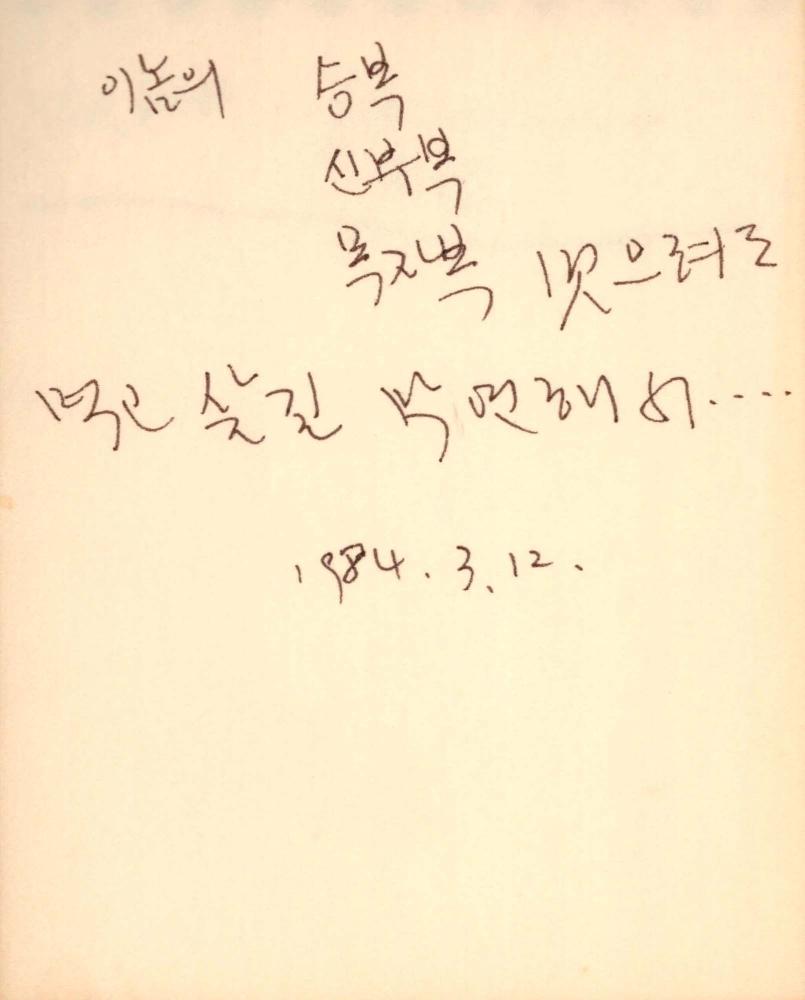 이놈의 승복
신부복
목자복 벗으려도
먹고 살길 막연해서....
1984. 3. 12.